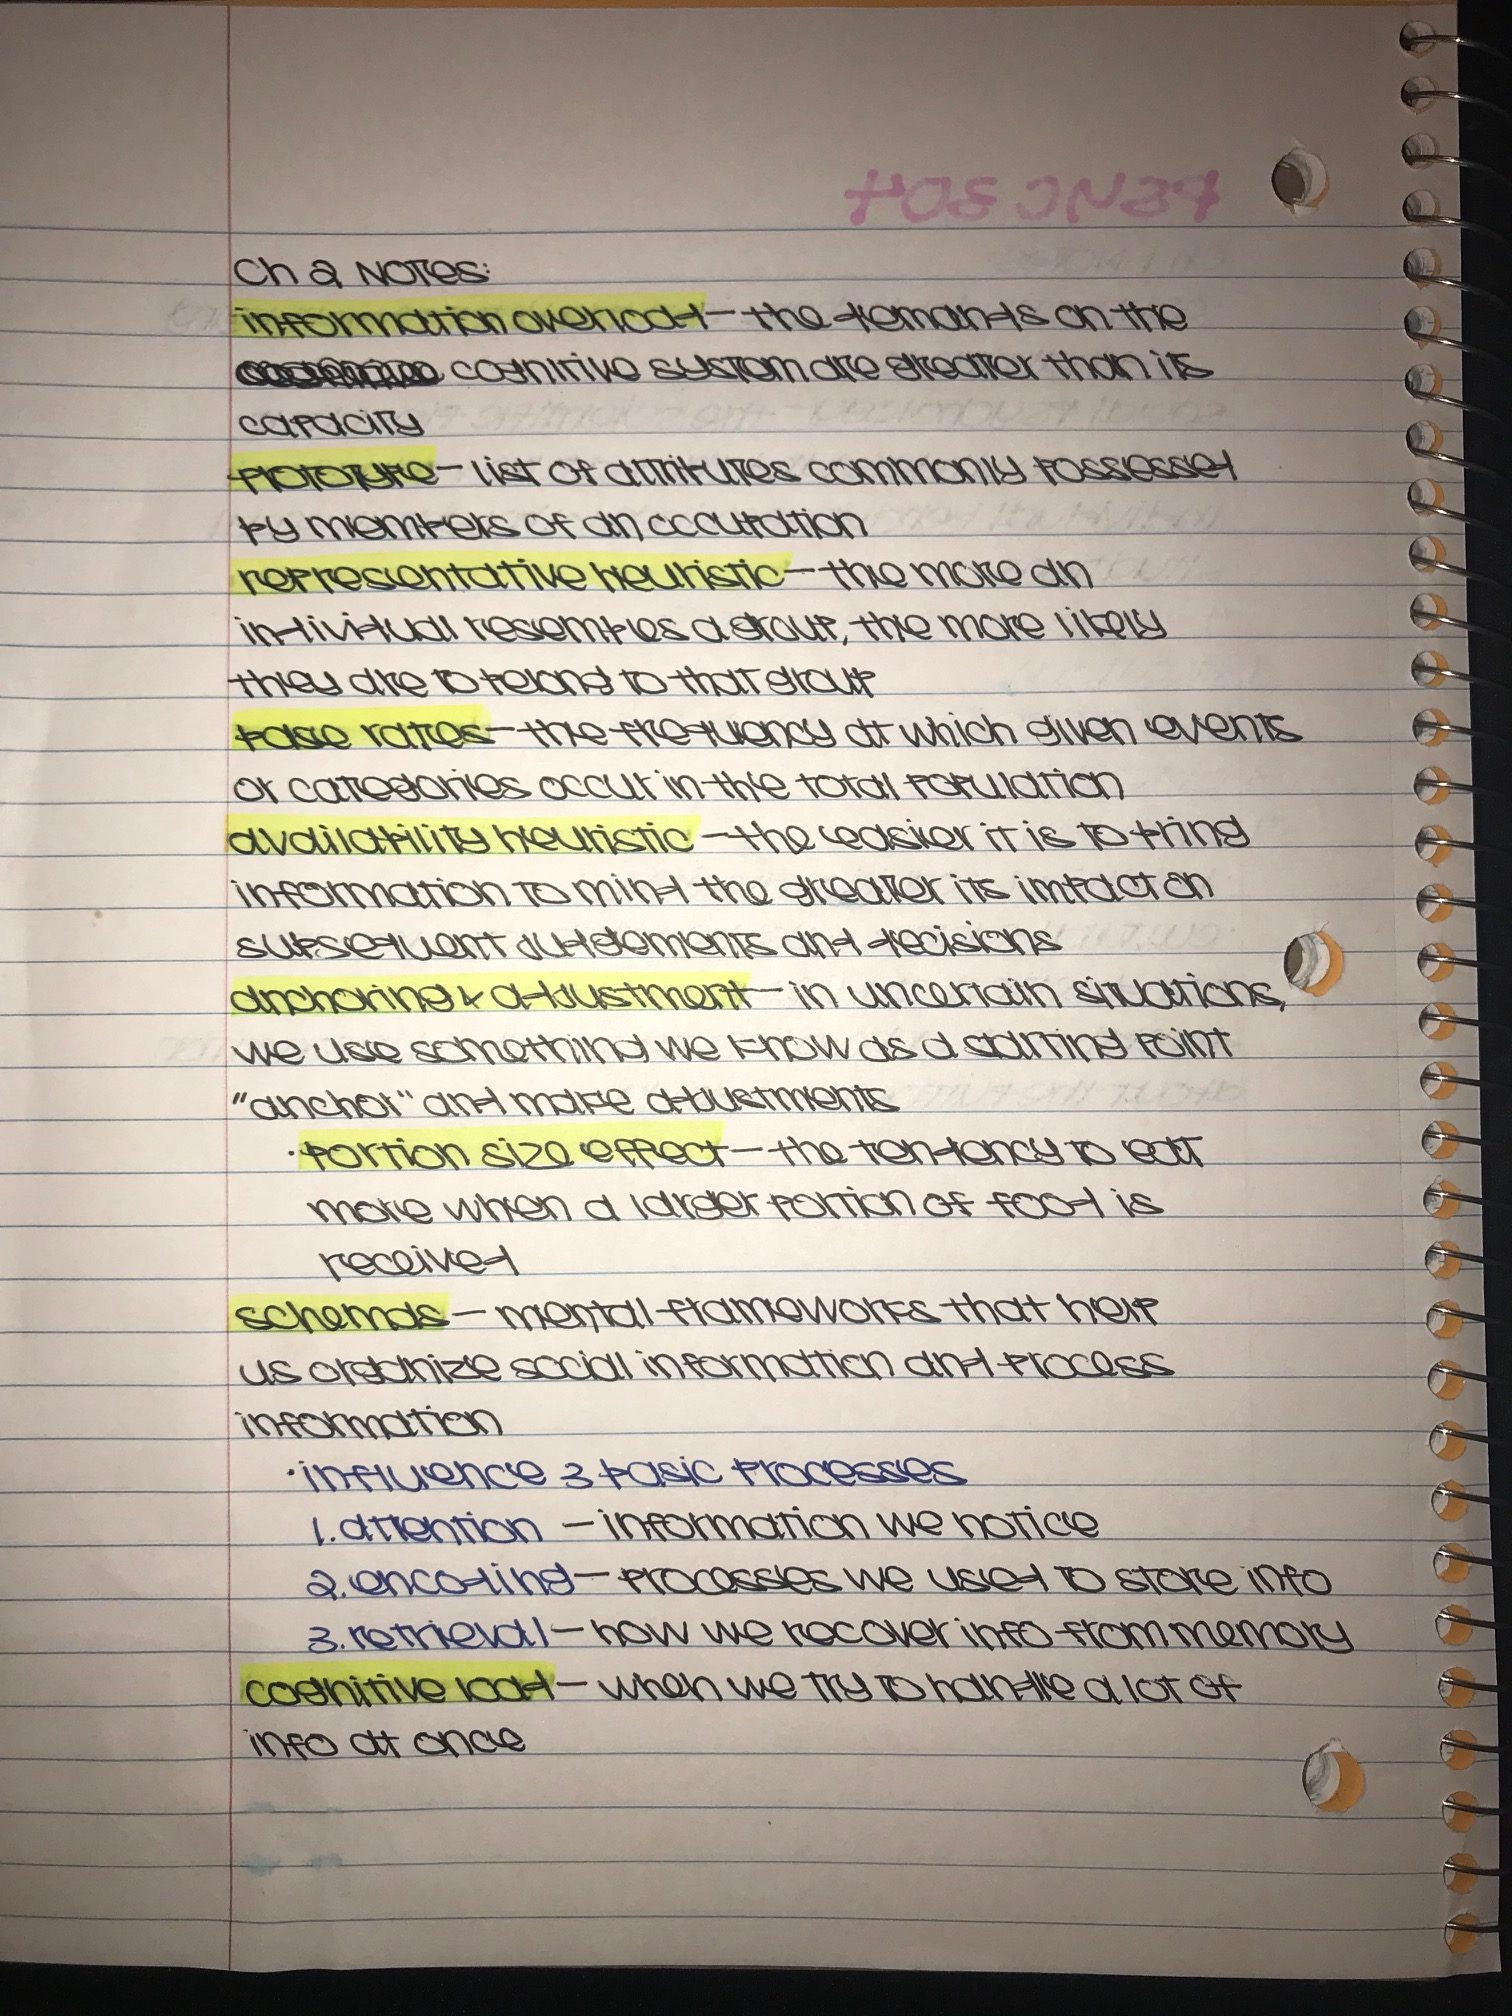 Ch 2 NOTES:
information overload – the demands on the
cognitive system are greater than its
capacity
prototype – list of attributes commonly possessed
by members of an occupation
representative heuristic – the more an
individual resembles a group, the more likely
they are to belong to that group
base rates – the frequency at which given events
or categories occur in the total population
availability heuristic – the easier it is to bring
information to mind the greater its impact on
subsequent judgements and decisions
anchoring & adjustment – in uncertain situations,
we use something we know as a starting point
"anchor" and make adjustments
· portion size effect – the tendency to eat
more when a larger portion of food is
received
schemas – mental frameworks that help
us organize social information and process
information
· influence 3 basic processes
1. attention – information we notice
2. encoding – processes we used to store info
3. retrieval – how we recover info from memory
cognitive load – when we try to handle a lot of
info at once